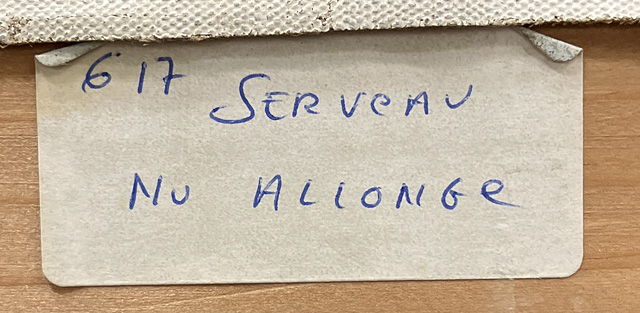 617 SERVEAU
NU ALLONGE